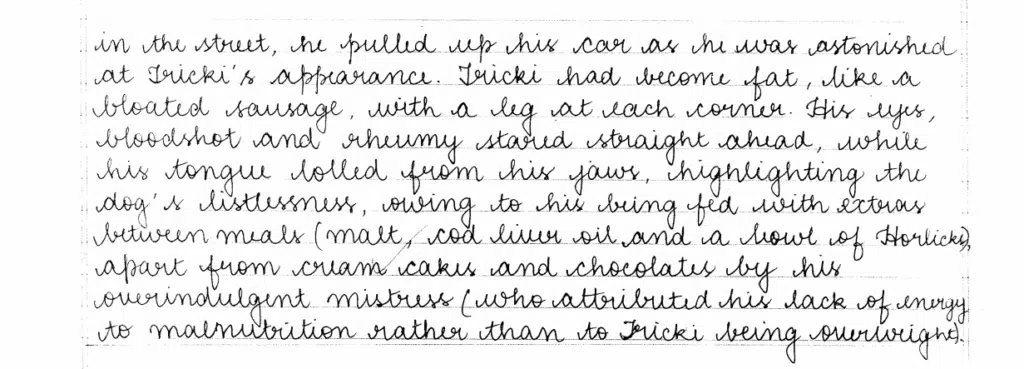 in the street, he pulled up his car as he was astonished
at Tricki's appearance. Tricki had become fat, like a
bloated sausage, with a leg at each corner. His eyes,
bloodshot and rheumy stared straight ahead, while
his tongue lolled from his jaws, highlighting the
dog's listlessness, owing to his being fed with extras
between meals (malt, cod liver oil and a bowl of Horlicks),
apart from cream cakes and chocolates by his
overindulgent mistress (who attributed his lack of energy
to malnutrition rather than to Tricki being overweight).